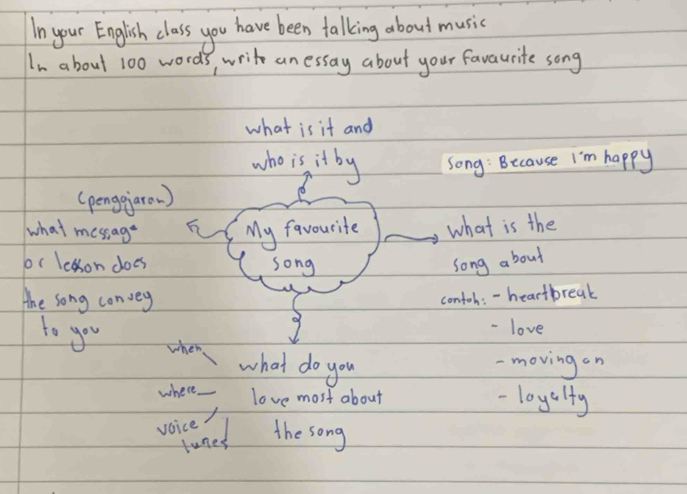 In your English class you have been talking about music
In about 100 words, write an essay about your favaurite song
what is it and
who is it by
Song: Because i'm happy
(pengajaran)
what message
or lesson does
the song convey
to you
My favourite
song
what is the
song about
contoh: - heartbreak
- love
- moving on
- loyalty
when
where
voice
tunes
what do you
love most about
the song